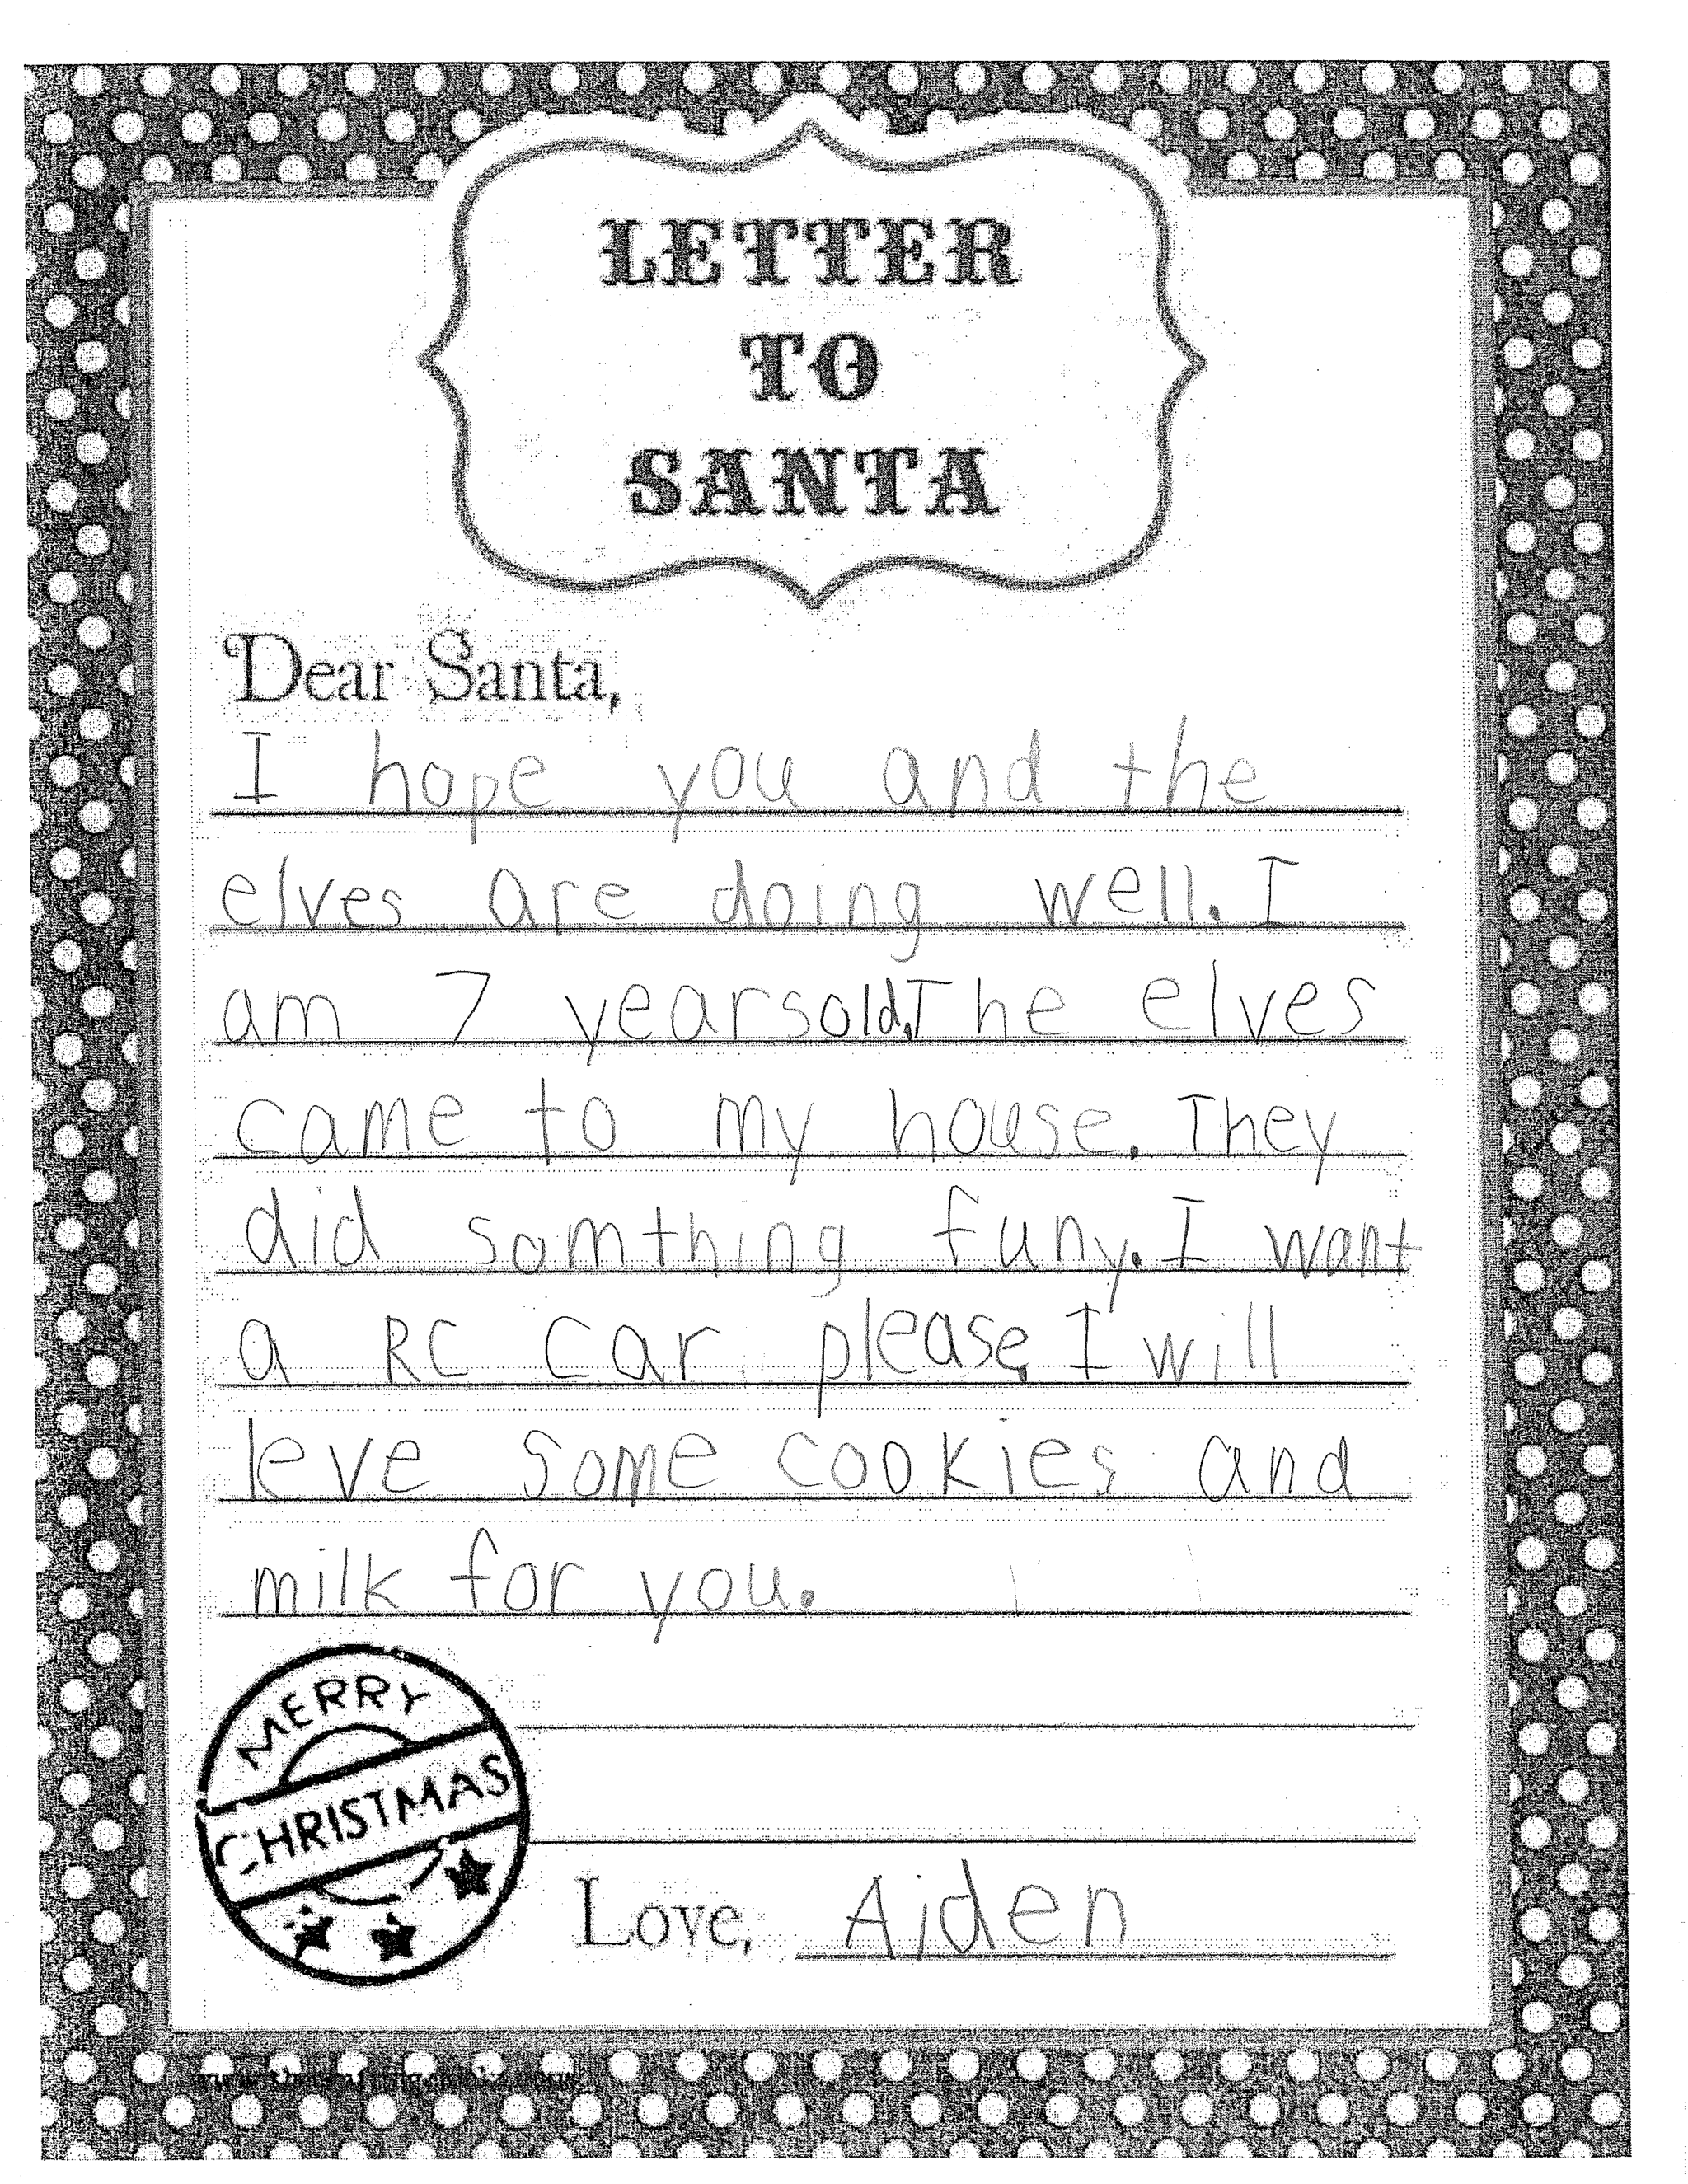 LETTER
TO
SANTA
Dear Santa,
I hope you and the
elves are doing well. I
am 7 yearsold.The elves
came to my house. They
did somthing funy. I want
a RC car please. I will
leve some cookies and
milk for you.
MERRY
CHRISTMAS
Love, Aiden